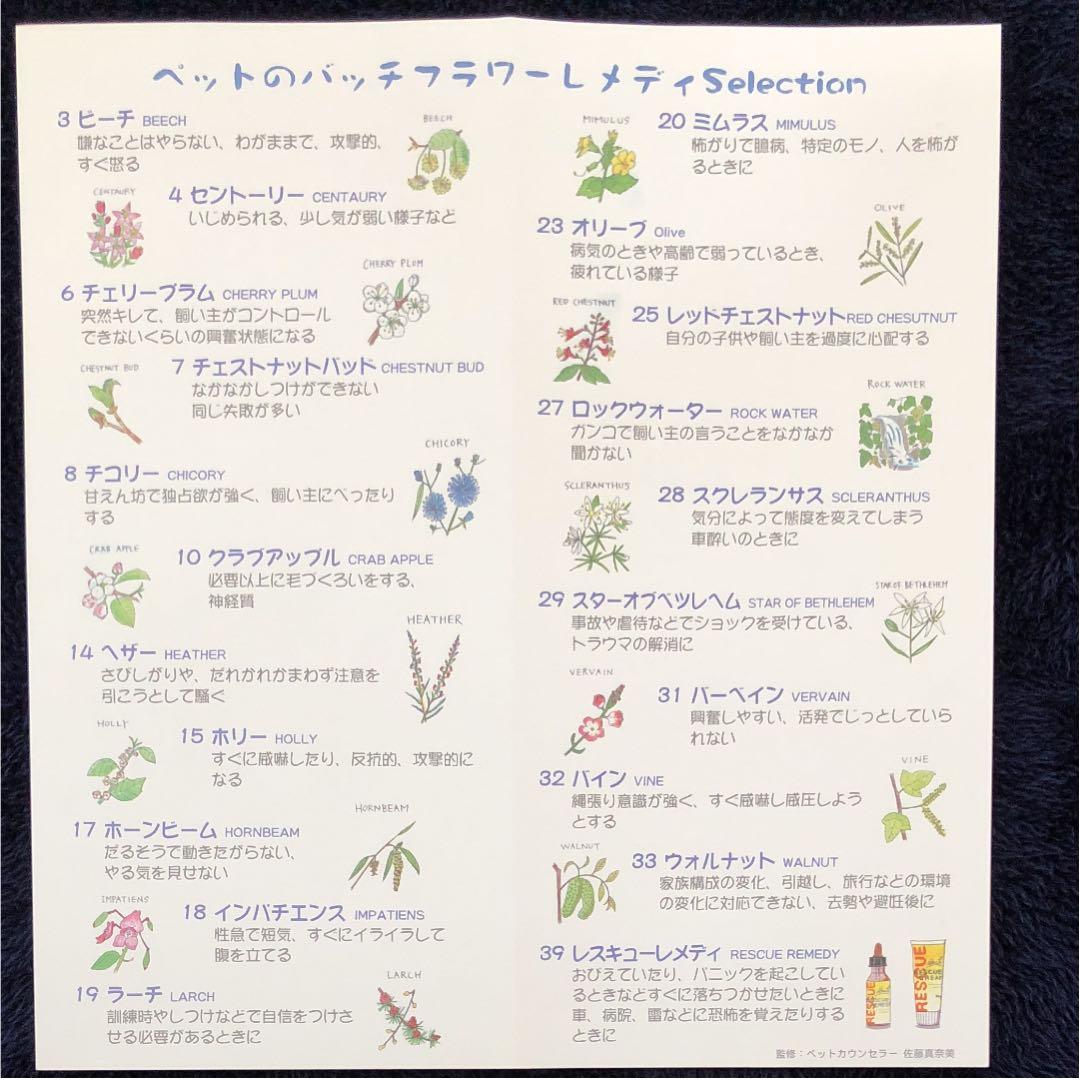 ペットのバッチフラワーレメディSelection
3 ビーチ BEECH
嫌なことはやらない、わがままで、攻撃的、
すぐ怒る
BEECH
CENTAURY
4 セントーリー CENTAURY
いじめられる、少し気が弱い様子など
CHERRY PLUM
6 チェリープラム CHERRY PLUM
突然キレて、飼い主がコントロール
できないくらいの興奮状態になる
CHESTNUT BUD
7 チェストナットバッド CHESTNUT BUD
なかなかしつけができない
同じ失敗が多い
CHICORY
8 チコリー CHICORY
甘えん坊で独占欲が強く、飼い主にべったり
する
CRAB APPLE
10 クラブアップル CRAB APPLE
必要以上に毛づくろいをする、
神経質
HEATHER
14 ヘザー HEATHER
さびしがりや、だれかれかまわず注意を
引こうとして騒ぐ
HOLLY
15 ホリー HOLLY
すぐに威嚇したり、反抗的、攻撃的に
なる
HORNBEAM
17 ホーンビーム HORNBEAM
だるそうで動きたがらない、
やる気を見せない
IMPATIENS
18 インパチエンス IMPATIENS
性急で短気、すぐにイライラして
腹を立てる
LARCH
19 ラーチ LARCH
訓練時やしつけなどで自信をつけさ
せる必要があるときに
MIMULUS
20 ミムラス MIMULUS
怖がりで臆病、特定のモノ、人を怖が
るときに
OLIVE
23 オリーブ Olive
病気のときや高齢で弱っているとき、
疲れている様子
RED CHESTNUT
25 レッドチェストナット RED CHESUTNUT
自分の子供や飼い主を過度に心配する
ROCK WATER
27 ロックウォーター ROCK WATER
ガンコで飼い主の言うことをなかなか
聞かない
SCLERANTHUS
28 スクレランサス SCLERANTHUS
気分によって態度を変えてしまう
車酔いのときに
STAR OF BETHLEHEM
29 スターオブベツレヘム STAR OF BETHLEHEM
事故や虐待などでショックを受けている、
トラウマの解消に
VERVAIN
31 バーベイン VERVAIN
興奮しやすい、活発でじっとしていら
れない
VINE
32 バイン VINE
縄張り意識が強く、すぐ威嚇し威圧しよう
とする
WALNUT
33 ウォルナット WALNUT
家族構成の変化、引越し、旅行などの環境
の変化に対応できない、去勢や避妊後に
39 レスキューレメディ RESCUE REMEDY
おびえていたり、パニックを起こしてい
るときなどすぐに落ちつかせたいときに
車、病院、雷などに恐怖を覚えたりする
ときに
RESCUE
RESCUE
監修：ペットカウンセラー 佐藤真奈美